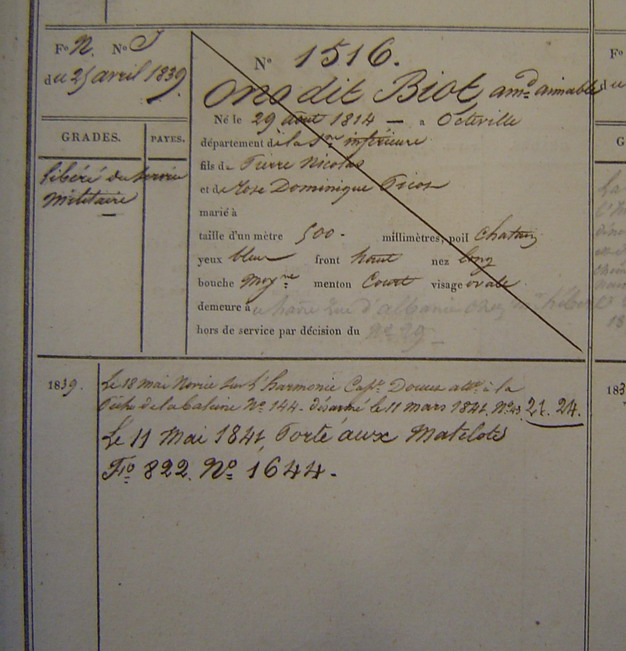 F.º N. N.º J
du 25 avril 1839
GRADES. PAYES.
libéré du service
militaire
N.º 1516.
Ono dit Biot, am.d aimable
Né le 29 août 1814 — a Octeville
département de la S.ne inférieure
fils de Pierre Nicolas
et de Rose Dominique Picon
marié à
taille d'un mètre 500 - millimètres, poil Chatain
yeux bleux front haut nez long
bouche moy.ne menton Court visage ovale
demeure à havre rue d'albanie chez
hors de service par décision du
N.º 29
1839. Le 18 mai Novice sur l'harmonie Cap.e all.t à la
Pêche de la baleine N.º 144. désarmé le 11 mars 1841. 21. 24.
Le 11 Mai 1841, Porté aux Matelots
F.º 822. N.º 1644.
F.º
du
G
183